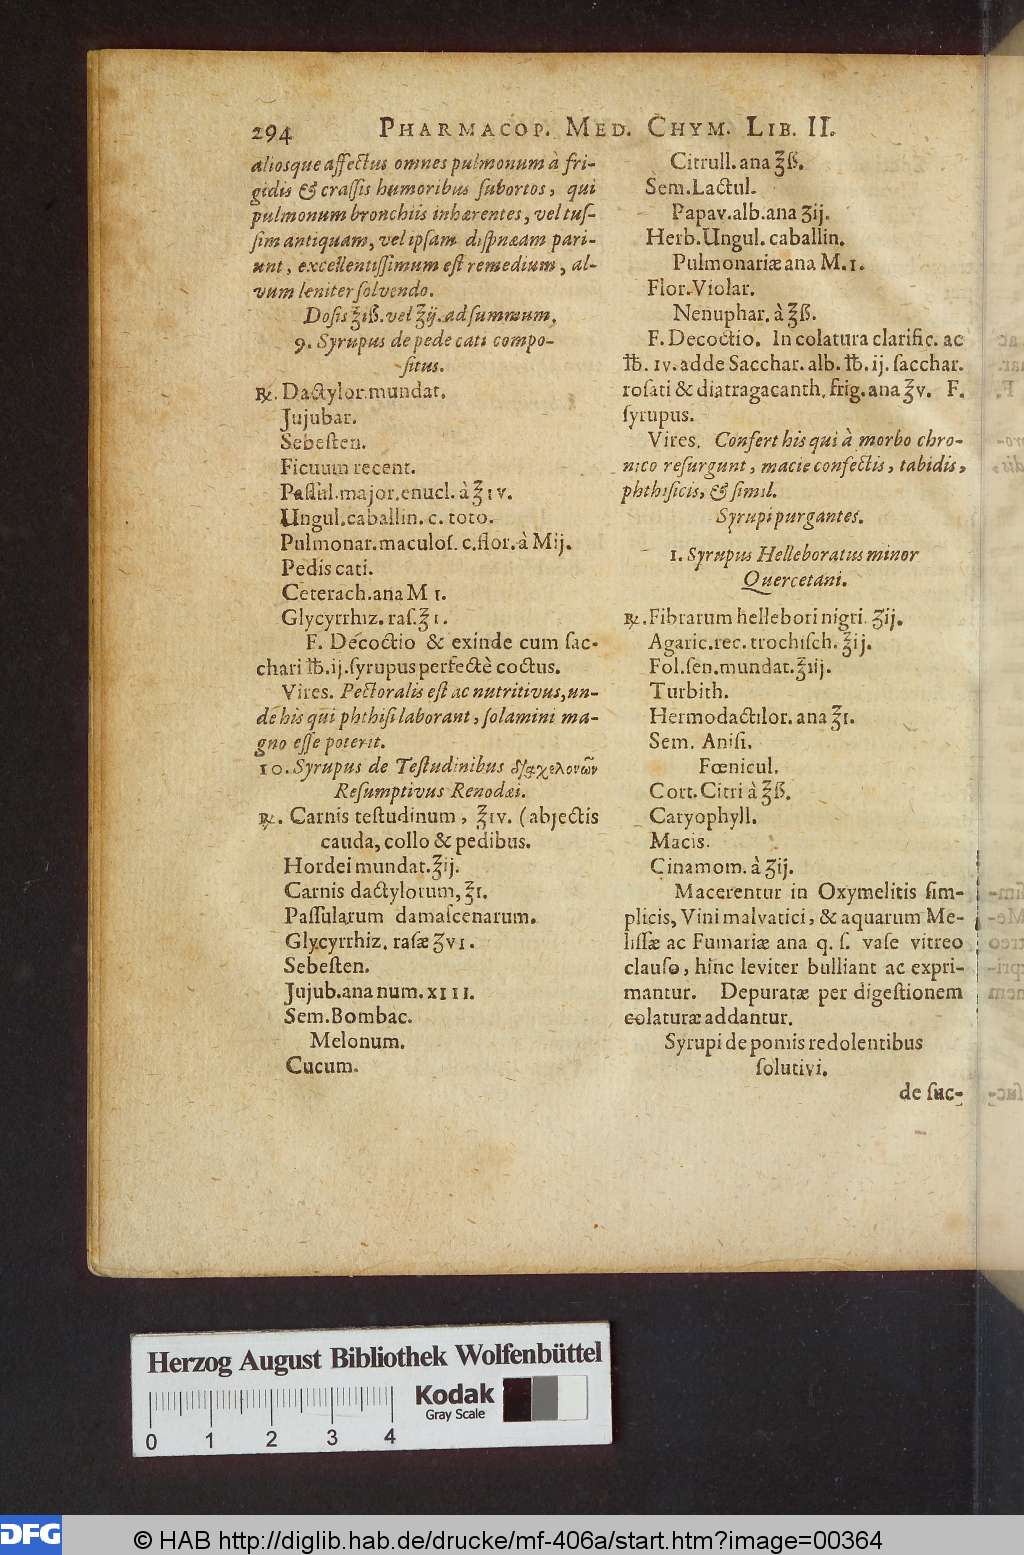 294 PHARMACOP. MED. CHYM. LIB. II.
aliosque affectus omnes pulmonum à fri-
gidis & crassis humoribus subortos, qui
pulmonum bronchiis inhærentes, vel tus-
sim antiquam, vel ipsam dispnæam pari-
unt, excellentissimum est remedium, al-
vum leniter solvendo.
Dosis ℥iß. vel ℥ij. ad summum.
9. Syrupus de pede cati compo-
situs.
℞. Dactylor. mundat.
Jujubar.
Sebesten.
Ficuum recent.
Passul. major. enucl. à ℥ıv.
Ungul. caballin. c. toto.
Pulmonar. maculos. c. flor. à Mij.
Pedis cati.
Ceterach. ana M ı.
Glycyrrhiz. ras. ℥ı.
F. Decoctio & exinde cum sac-
chari ℔. ij. syrupus perfectè coctus.
Vires. Pectoralis est ac nutritivus, un-
de his qui phthisi laborant, solamini ma-
gno esse poterit.
10. Syrupus de Testudinibus διαχελονῶν
Resumptivus Renodæi.
℞. Carnis testudinum, ℥ıv. (abjectis
cauda, collo & pedibus.
Hordei mundat. ℥ij.
Carnis dactylorum, ℥ı.
Passularum damascenarum.
Glycyrrhiz. rasæ ʒvı.
Sebesten.
Jujub. ana num. xııı.
Sem. Bombac.
Melonum.
Cucum.
Citrull. ana ℥ß.
Sem. Lactul.
Papav. alb. ana ʒij.
Herb. Ungul. caballin.
Pulmonariæ ana M. ı.
Flor. Violar.
Nenuphar. à ℥ß.
F. Decoctio. In colatura clarific. ac
℔. ıv. adde Sacchar. alb. ℔. ij. sacchar.
rosati & diatragacanth. frig. ana ℥v. F.
syrupus.
Vires. Confert his qui à morbo chro-
nico resurgunt, macie confectis, tabidis,
phthisicis, & simil.
Syrupi purgantes.
1. Syrupus Helleboratus minor
Quercetani.
℞. Fibrarum hellebori nigri. ʒij.
Agaric. rec. trochisch. ℥ij.
Fol. sen. mundat. ℥iij.
Turbith.
Hermodactilor. ana ℥ı.
Sem. Anisi.
Fœnicul.
Cort. Citri à ℥ß.
Caryophyll.
Macis.
Cinamom. à ʒij.
Macerentur in Oxymelitis sim-
plicis, Vini malvatici, & aquarum Me-
lissæ ac Fumariæ ana q. s. vase vitreo
clauso, hinc leviter bulliant ac expri-
mantur. Depuratæ per digestionem
colaturæ addantur.
Syrupi de pomis redolentibus
solutivi.
de suc-
Herzog August Bibliothek Wolfenbüttel
0 1 2 3 4
Kodak
Gray Scale
DFG
© HAB http://diglib.hab.de/drucke/mf-406a/start.htm?image=00364